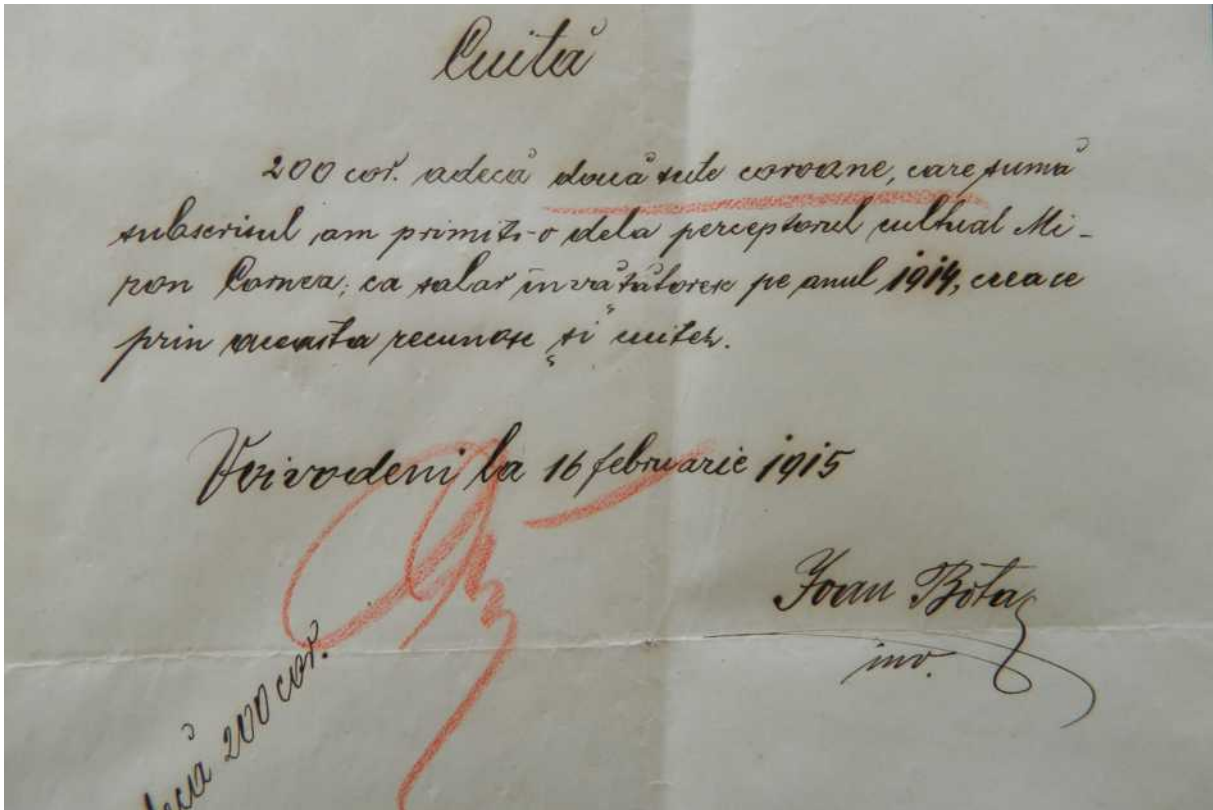 Cuită
200 cor. adecă două sute coroane, care sumă
subscrisul am primit-o dela perceptorul cultual Mi-
ron Cornea, ca salar învățătoresc pe anul 1914, ceea ce
prin aceasta recunosc și cuitez.
Voivodeni la 16 februarie 1915
Ioan Bota
inv.
adecă 200 cor.